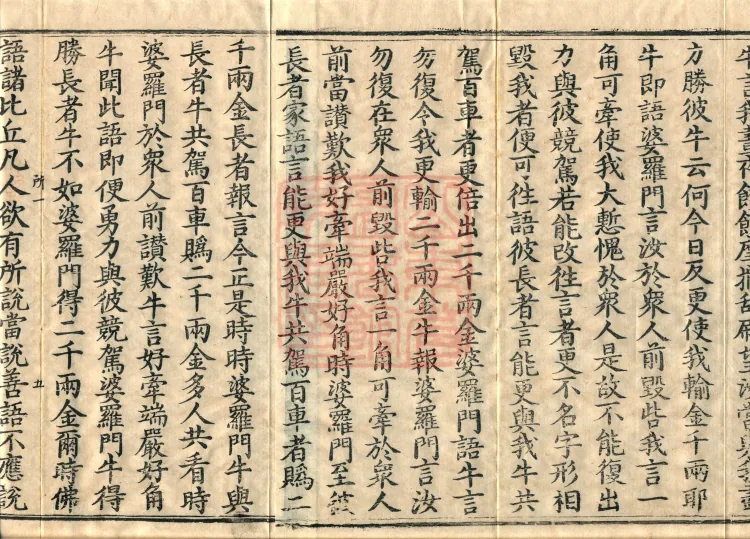 力勝彼牛云何今日反更使我輸金千兩耶
牛即語婆羅門言汝於衆人前毀呰我言一
角可牽使我大慙愧於衆人是故不能復出
力與彼競駕若能改往言者更不名字形相
毀我者便可往語彼長者言能更與我牛共
駕百車者更倍出二千兩金婆羅門語牛言
勿復令我更輸二千兩金牛報婆羅門言汝
勿復在衆人前毀呰我言一角可牽於衆人
前當讃歎我好牽端嚴好角時婆羅門至彼
長者家語言能更與我牛共駕百車者賭二
千兩金長者報言今正是時時婆羅門牛與
長者牛共駕百車賭二千兩金多人共看時
婆羅門於衆人前讃歎牛言好牽端嚴好角
牛聞此語即便勇力與彼競駕婆羅門牛得
勝長者牛不如婆羅門得二千兩金爾時佛
所一 五
語諸比丘凡人欲有所說當說善語不應說